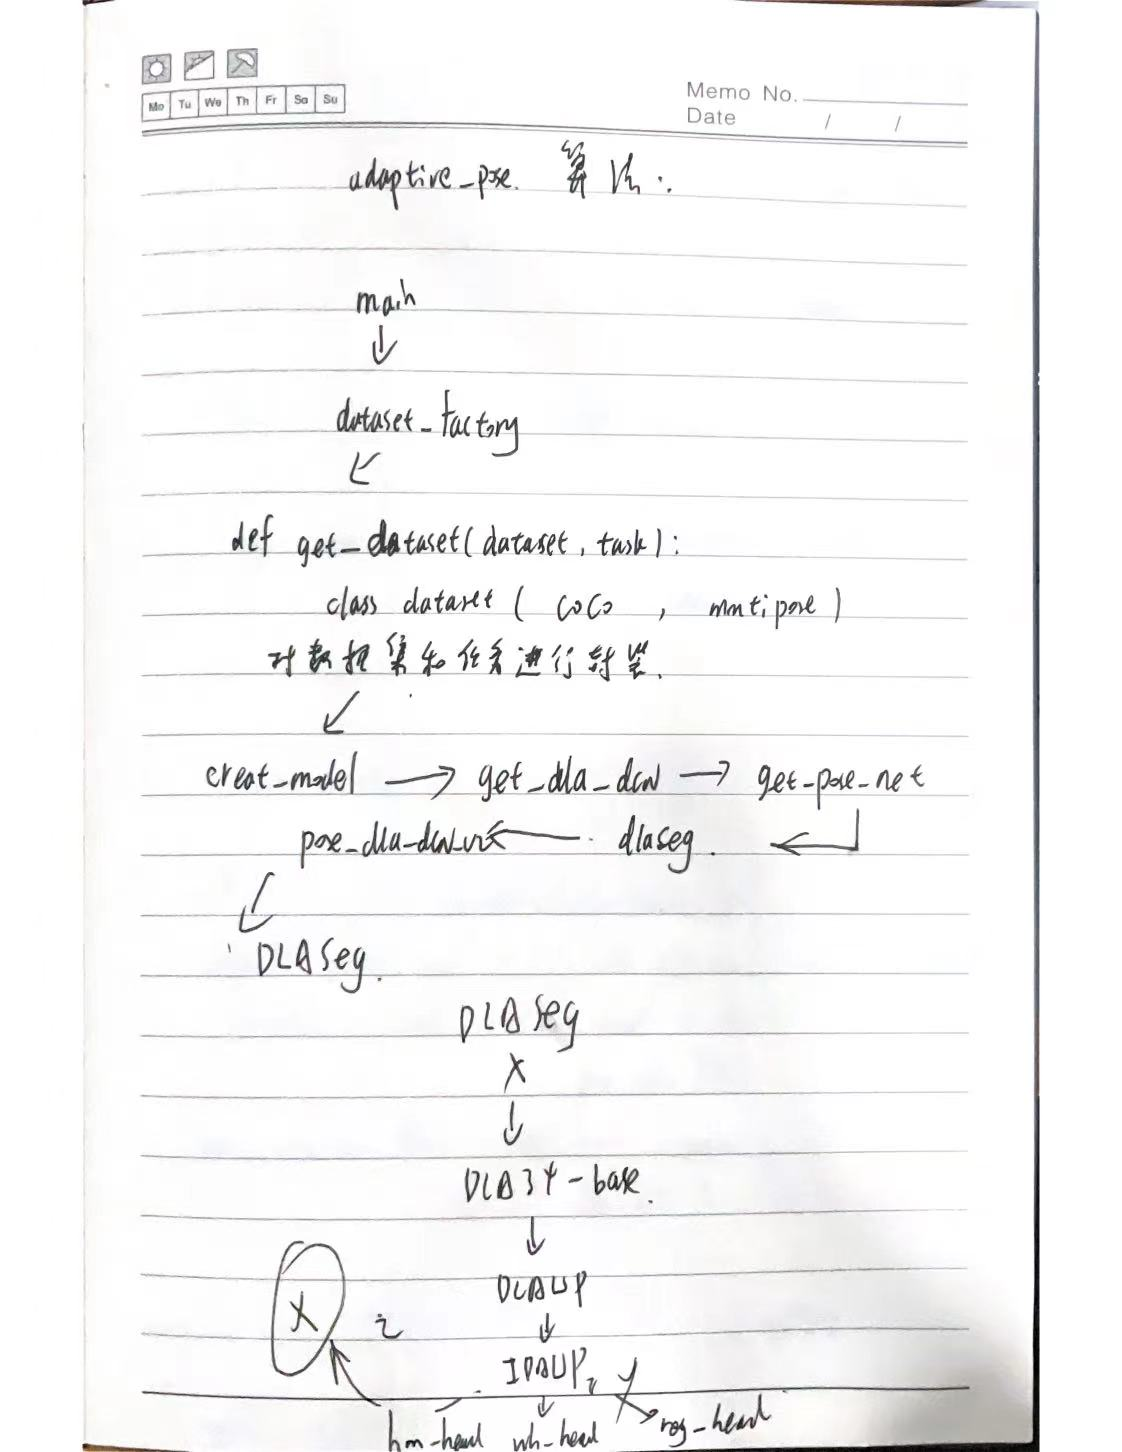 Mo Tu We Th Fr Sa Su
Memo No.
Date / /
adaptive_pose. 算法:
main
↓
dataset_factory
↙
def get_dataset(dataset, task):
class dataset ( COCO , mutipose )
对数据集和任务进行封装.
↙
creat_model → get_dla_dcn → get_pose_net
pose_dla_dcn ← dlaseg.
↙
DLASeg.
DLASeg
X
↓
DLA34-base.
↓
DLAUP
X
↓
IDAUP, y
hm-head wh-head reg-head